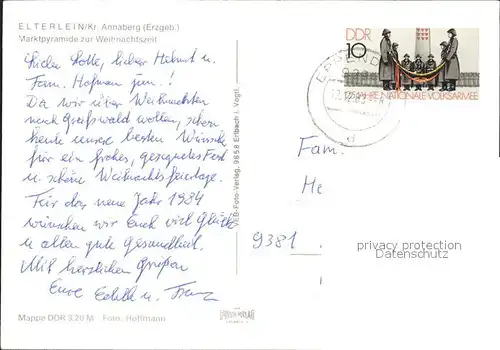 ELTERLEIN/Kr. Annaberg (Erzgeb.)
Marktpyramide zur Weihnachtszeit
Liebe Lotte, lieber Helmut u.
Fam. Hofman jun.!
Da wir über Weihnachten
nach Greifswald wollen, schon
heute unsere besten Wünsche
für ein frohes, gesegnetes Fest
u. schöne Weihnachtsfeiertage.
Für das neue Jahr 1984
wünschen wir Euch viel Glück
u. allen gute Gesundheit.
Mit herzlichen Grüßen
Eure Edith u. Franz
Mappe DDR 3,20 M Foto: Hoffmann
VEB-Foto-Verlag, 9658 Erlbach i. Vogtl.
DDR
10
25 JAHRE NATIONALE VOLKSARMEE
Fam.
He
9381
privacy protection
Datenschutz